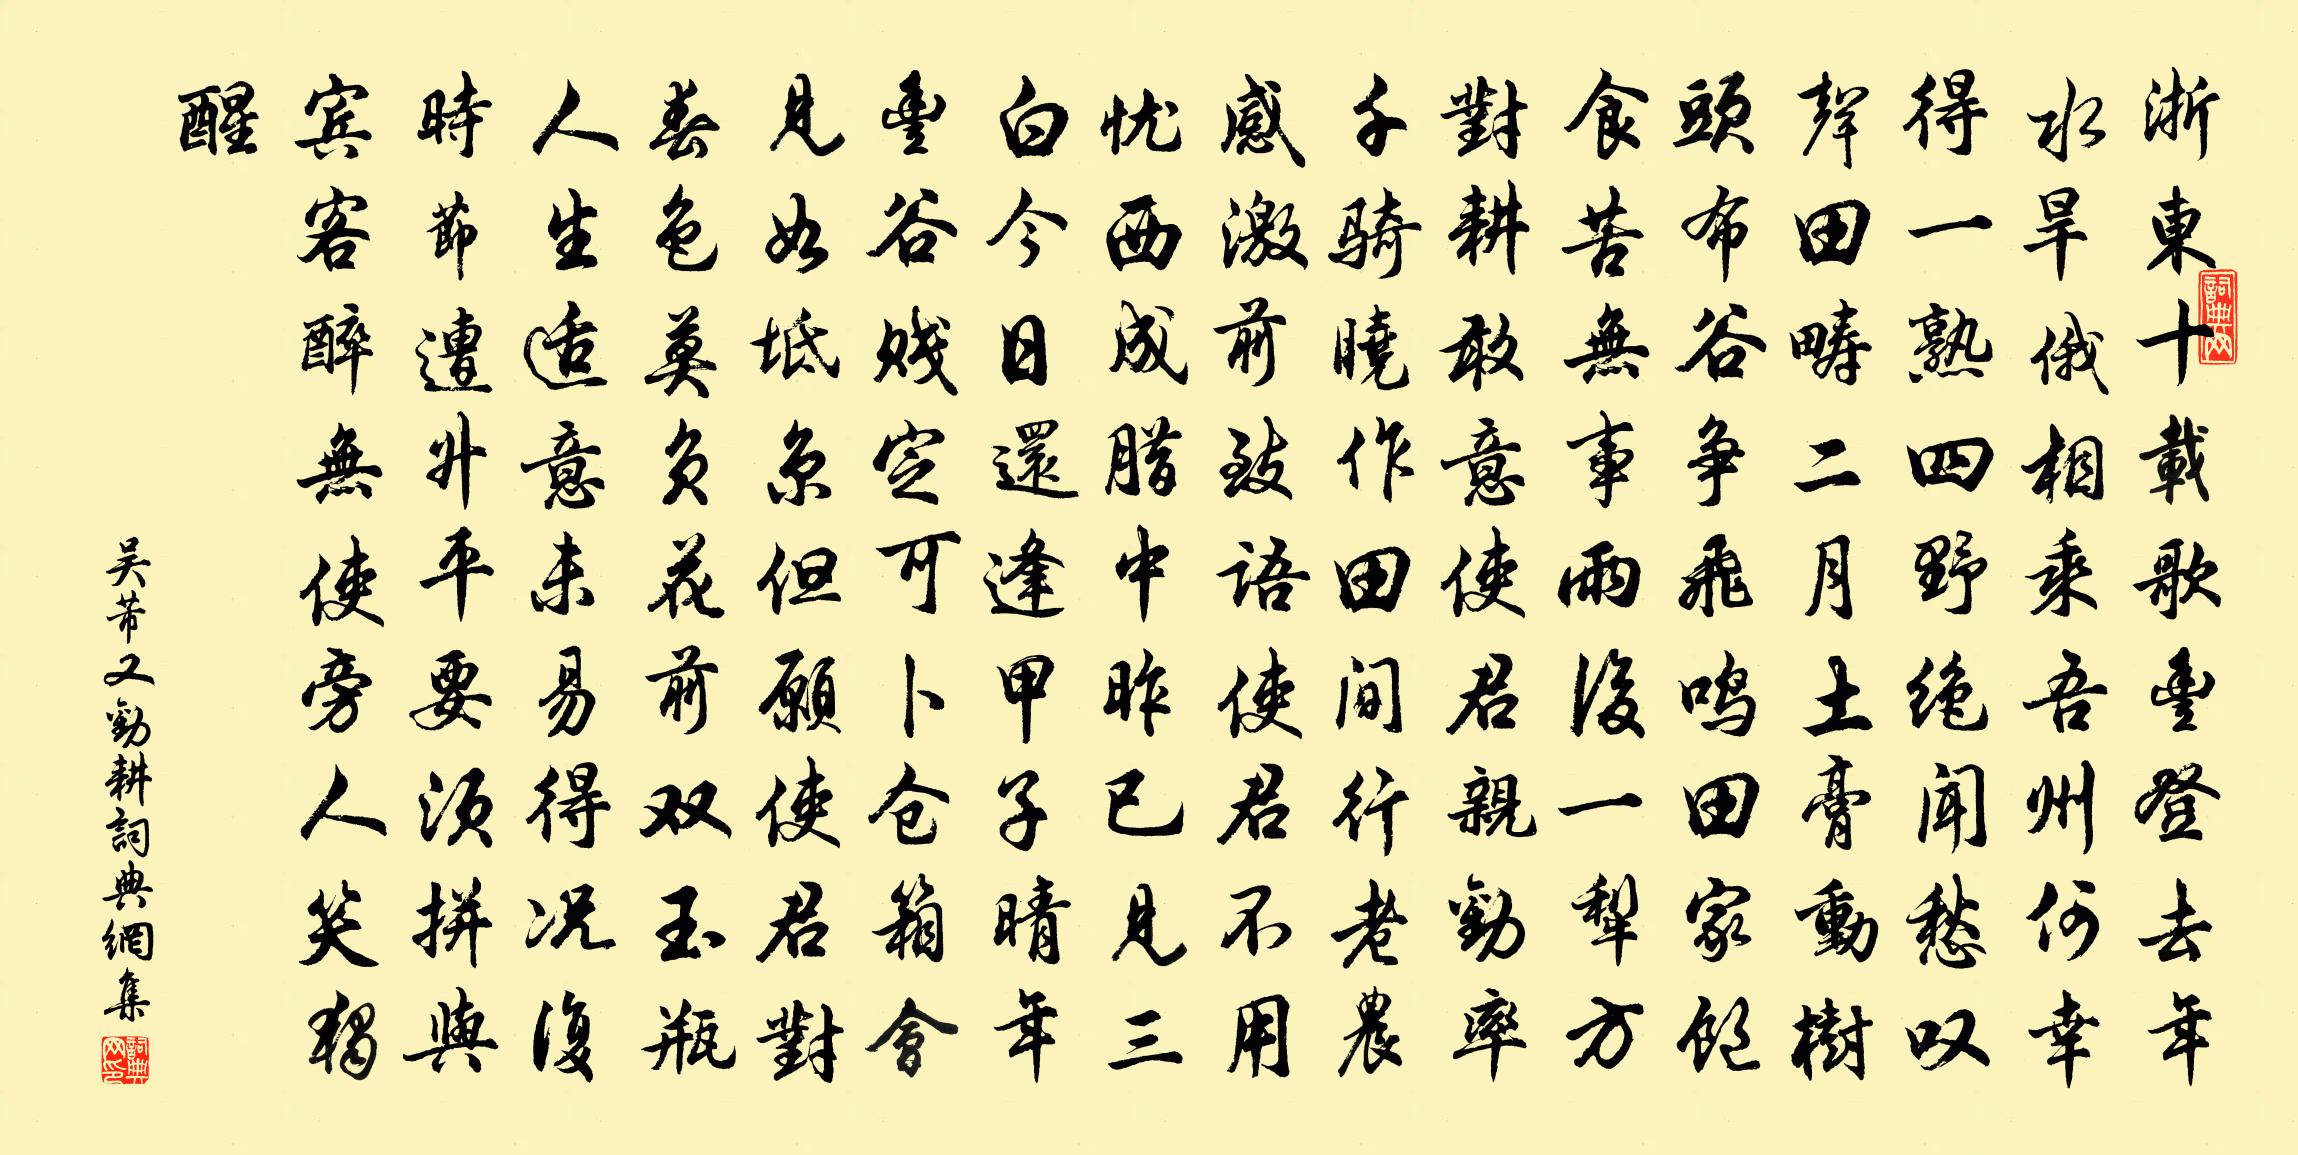 浙東十載歌豊登去年
水旱俄相乘吾州何幸
得一熟四野絶聞愁叹
聲田疇二月土膏動樹
頭布谷争飛鳴田家飽
食苦無事雨後一犁方
對耕敢意使君親勸率
千騎曉作田間行老農
感激前致語使君不用
忧西成腊中昨已見三
白今日還逢甲子晴年
豊谷贱定可卜仓箱會
見如坻京但願使君對
春色莫負花前双玉瓶
人生适意未易得况復
時節遭升平要須拼與
賓客醉無使旁人笑獨
醒
吴芾又勸耕詞典網集
詞典网
詞典网印